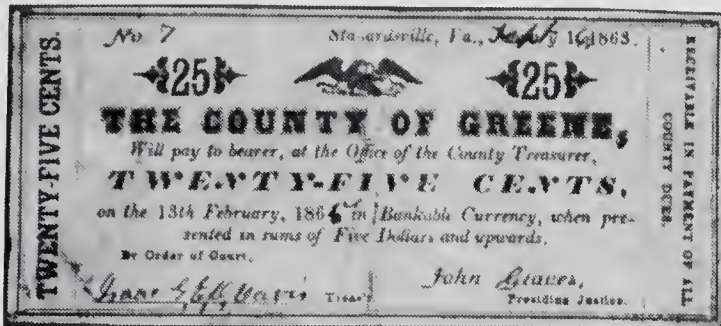 TWENTY-FIVE CENTS.
No 7 Stanardsville, Va., 1863.
25 25
THE COUNTY OF GREENE,
Will pay to bearer, at the Office of the County Treasurer,
TWENTY-FIVE CENTS,
on the 13th February, 186 in Bankable Currency, when pre-
sented in sums of Five Dollars and upwards.
By Order of Court.
Treas'r John Graves,
Presiding Justice.
RECEIVABLE IN PAYMENT OF ALL
COUNTY DUES.